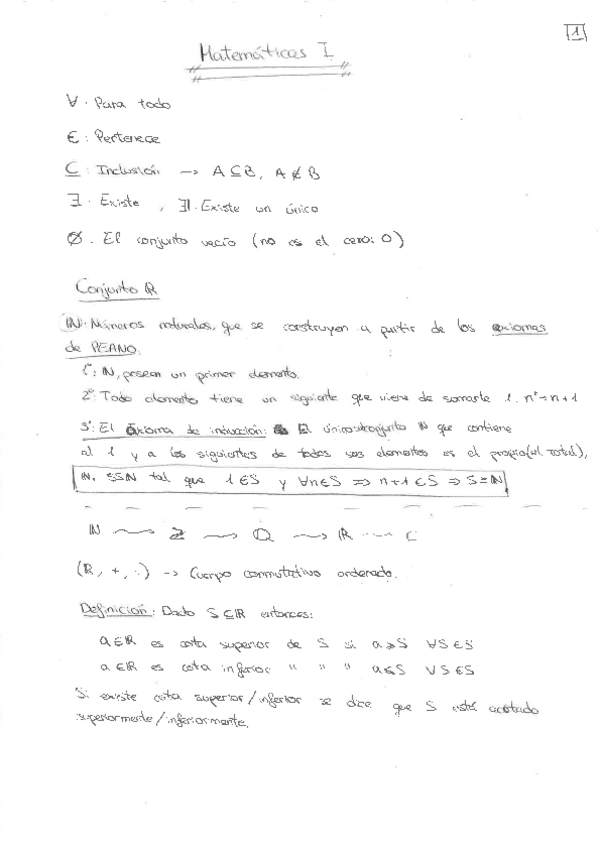 1
Matemáticas I
∀ · Para todo
∈ : Pertenece
⊆ : Inclusión → A ⊆ B, A ⊄ B
∃ · Existe , ∃! · Existe un único
Ø · El conjunto vacío (no es el cero: 0)
Conjunto ℝ
ℕ: Números naturales, que se construyen a partir de los axiomas
de PEANO.
1º: ℕ, posean un primer elemento.
2º: Todo elemento tiene un siguiente que viene de sumarle 1. n* = n+1
3º: El axioma de inducción: El único subconjunto ℕ que contiene
al 1 y a los siguientes de todos sus elementos es el propio (el total),
ℕ. S⊆ℕ tal que 1 ∈ S y ∀n∈S ⇒ n+1 ∈ S ⇒ S=ℕ
ℕ → ℤ → ℚ → ℝ ... ℂ
(ℝ, +, ·) → Cuerpo conmutativo ordenado.
Definición: Dado S ⊆ ℝ entonces:
a∈ℝ es cota superior de S si a ⩾ S ∀S∈S
a ∈ℝ es cota inferior " " " a⩽S ∀S∈S
Si existe cota superior/inferior se dice que S está acotado
superiormente/inferiormente.